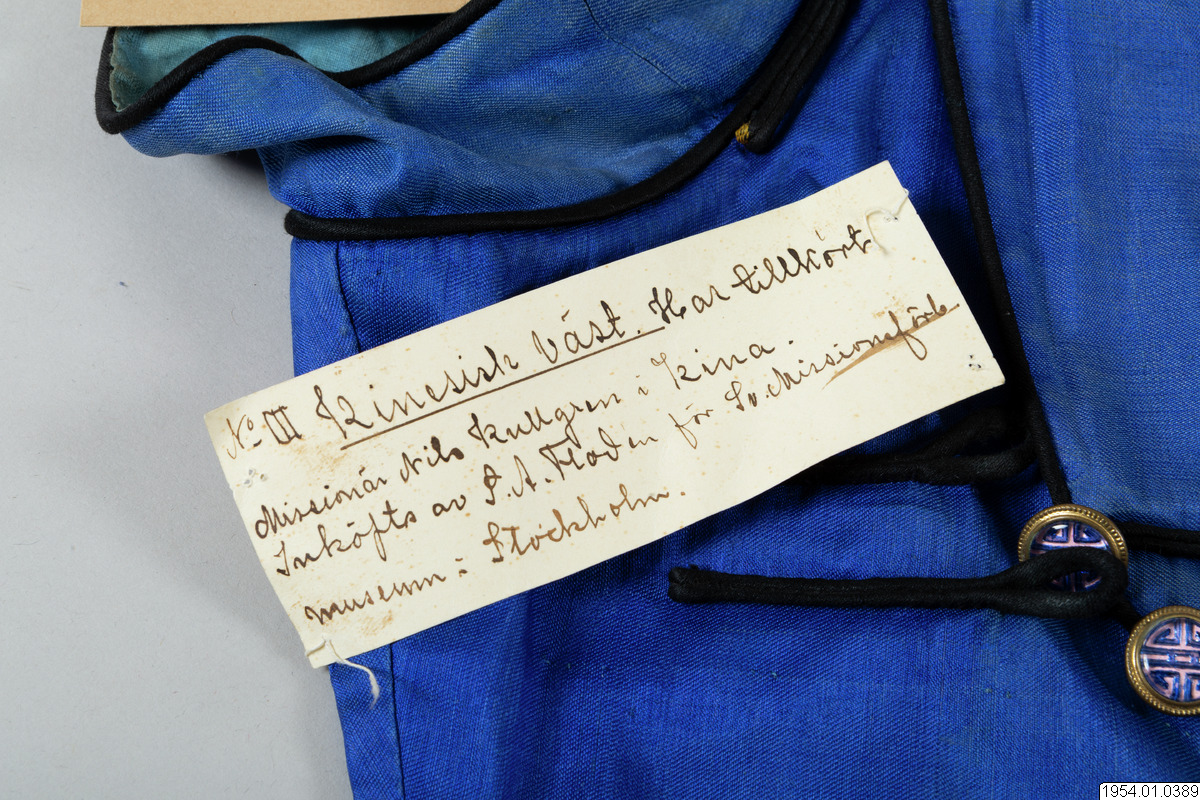 No III Kinesisk Väst. Har tillhört
Missionär Nils Kullgren i Kina.
Inköfts av P. A. Floden för Sv. Missionsförb.
museum i Stockholm.
1954.01.0389